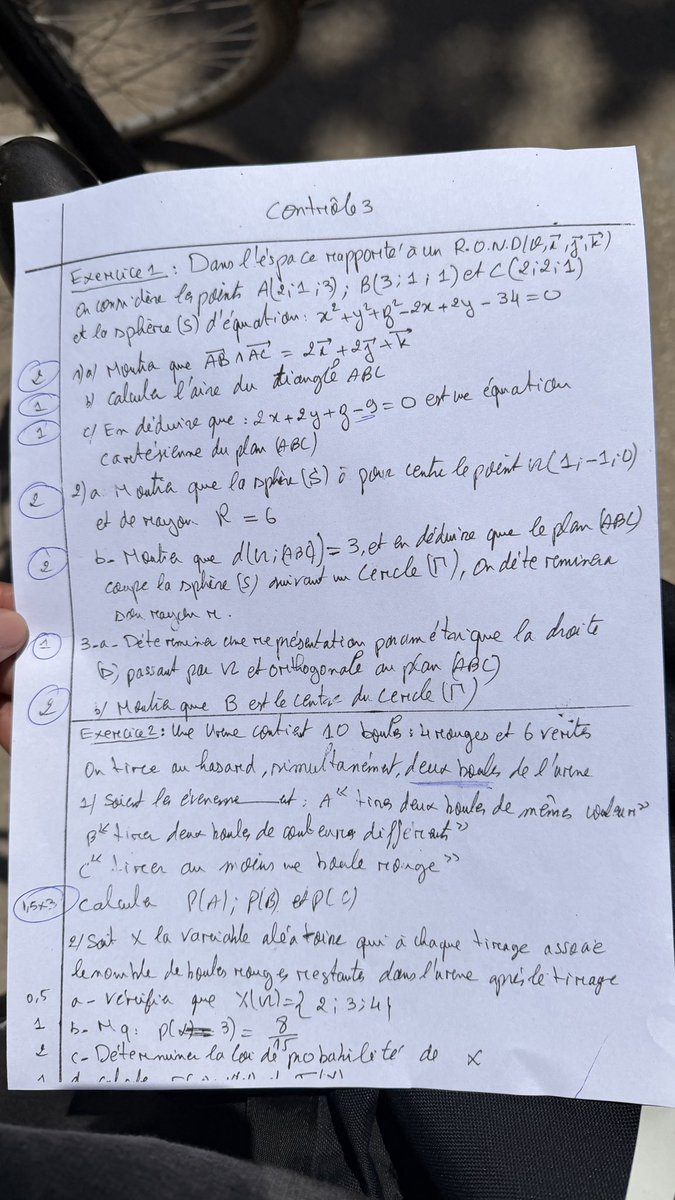 Contrôle 3
Exercice 1 : Dans l'éspace rapporté à un R.O.N.D(O,i⃗,j⃗,k⃗)
on considère les points A(2;1;3); B(3;1;1) et C(2;2;1)
et la sphère (S) d'équation: x²+y²+z²-2x+2y-34=0
2 1) a) Montrer que A͞B∧A͞C = 2i⃗+2j⃗+k⃗
1 b) Calculer l'aire du triangle ABC
1 c) En déduire que : 2x+2y+z-9=0 est une équation
cartésienne du plan (ABC)
2 2) a. Montrer que la sphère (S) à pour centre le point Ω(1;-1;0)
et de rayon R = 6
2 b- Montrer que d(Ω;(ABC))=3, et en déduire que le plan (ABC)
coupe la sphère (S) suivant un cercle (Γ), On déterminera
son rayon r.
1 3-a- Déterminer une représentation paramétrique la droite
(Δ) passant par Ω et orthogonale au plan (ABC)
2 b/ Montrer que B est le centre du cercle (Γ)
Exercice 2 : Une Urne contient 10 boules : 4 rouges et 6 vertes
On tire au hasard, simultanément, deux boules de l'urne
1) Soient les évènement : A "tirer deux boules de mêmes couleur"
B "tirer deux boules de couleurs différents"
C "tirer au moins une boule rouge"
1,5x3 Calculer P(A); P(B) et P(C)
2/ Soit X la variable aléatoire qui à chaque tirage associe
le nombre de boules rouges restants dans l'urne après le tirage
0,5 a- vérifier que X(Ω)={2;3;4}
1 b- Mq: P(X=3)=8/15
2 c- Déterminer la loi de probabilité de X
1 d